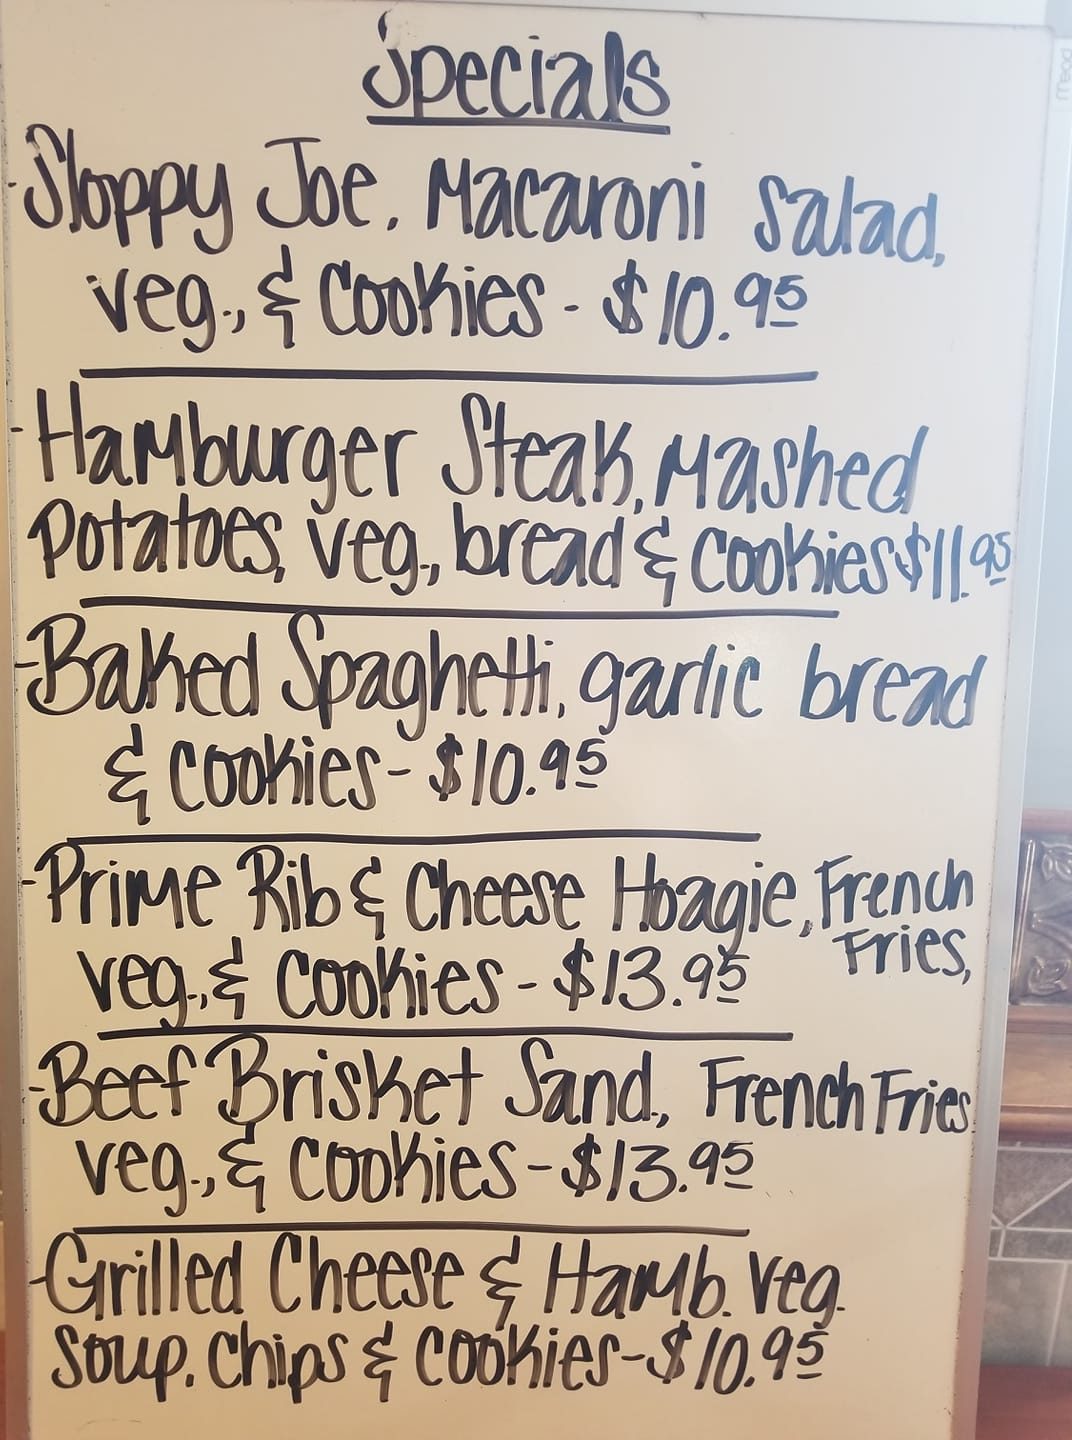 Specials
-Sloppy Joe, Macaroni Salad,
veg., & Cookies - $10.95
-Hamburger Steak, Mashed
Potatoes, veg., bread & Cookies $11.95
-Baked Spaghetti, garlic bread
& Cookies - $10.95
-Prime Rib & Cheese Hoagie, French
Fries,
veg., & Cookies - $13.95
-Beef Brisket Sand., French Fries
veg., & Cookies - $13.95
-Grilled Cheese & Hamb. Veg.
Soup, Chips & Cookies - $10.95
Mead